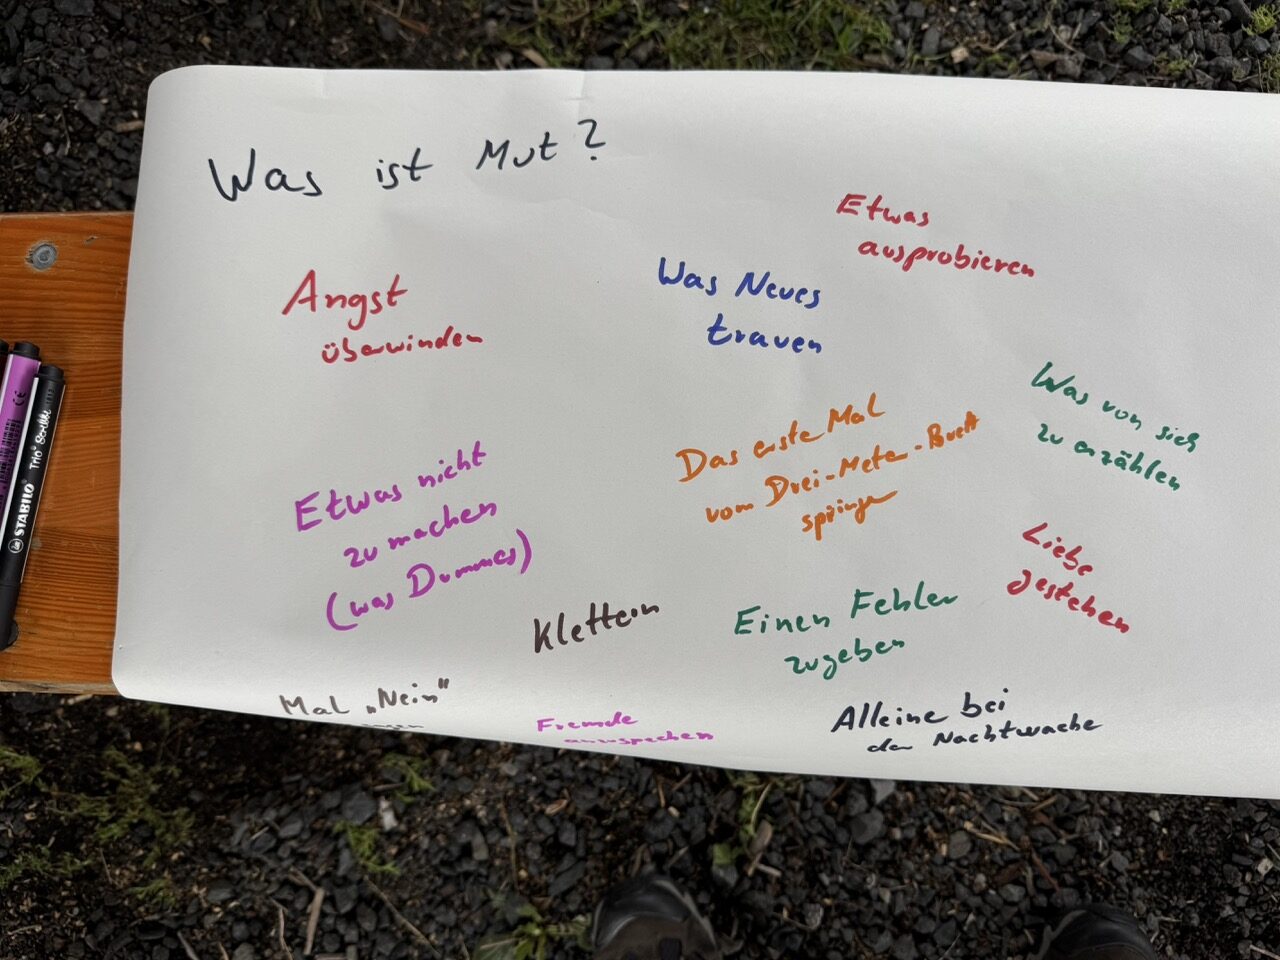 Was ist Mut?
Etwas
ausprobieren
Angst
überwinden
Was Neues
trauen
Was von sich
zu erzählen
Das erste Mal
vom Drei-Meter-Brett
springen
Etwas nicht
zu machen
(was Dummes)
Liebe
gestehen
Klettern
Einen Fehler
zugeben
Mal „Nein“
Fremde
anzusprechen
Alleine bei
der Nachtwache
STABILO Trio Scribbi
CE